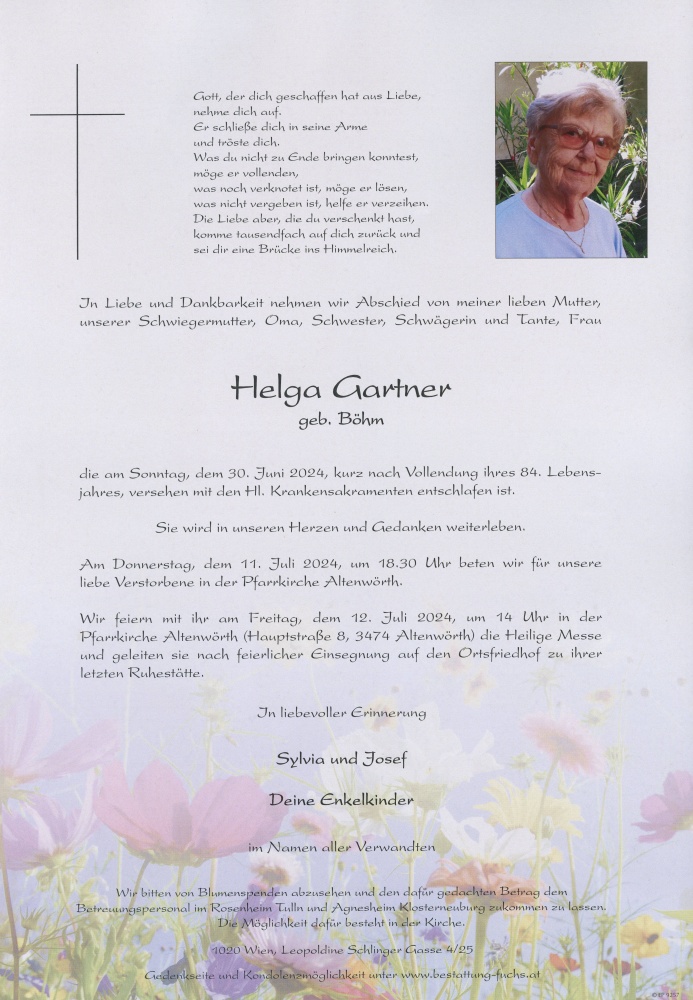 Gott, der dich geschaffen hat aus Liebe,
nehme dich auf.
Er schließe dich in seine Arme
und tröste dich.
Was du nicht zu Ende bringen konntest,
möge er vollenden,
was noch verknotet ist, möge er lösen,
was nicht vergeben ist, helfe er verzeihen.
Die Liebe aber, die du verschenkt hast,
komme tausendfach auf dich zurück und
sei dir eine Brücke ins Himmelreich.
In Liebe und Dankbarkeit nehmen wir Abschied von meiner lieben Mutter,
unserer Schwiegermutter, Oma, Schwester, Schwägerin und Tante, Frau
Helga Gartner
geb. Böhm
die am Sonntag, dem 30. Juni 2024, kurz nach Vollendung ihres 84. Lebens-
jahres, versehen mit den Hl. Krankensakramenten entschlafen ist.
Sie wird in unseren Herzen und Gedanken weiterleben.
Am Donnerstag, dem 11. Juli 2024, um 18.30 Uhr beten wir für unsere
liebe Verstorbene in der Pfarrkirche Altenwörth.
Wir feiern mit ihr am Freitag, dem 12. Juli 2024, um 14 Uhr in der
Pfarrkirche Altenwörth (Hauptstraße 8, 3474 Altenwörth) die Heilige Messe
und geleiten sie nach feierlicher Einsegnung auf den Ortsfriedhof zu ihrer
letzten Ruhestätte.
In liebevoller Erinnerung
Sylvia und Josef
Deine Enkelkinder
im Namen aller Verwandten
Wir bitten von Blumenspenden abzusehen und den dafür gedachten Betrag dem
Betreuungspersonal im Rosenheim Tulln und Agnesheim Klosterneuburg zukommen zu lassen.
Die Möglichkeit dafür besteht in der Kirche.
1020 Wien, Leopoldine Schlinger Gasse 4/25
Gedenkseite und Kondolenzmöglichkeit unter www.bestattung-fuchs.at